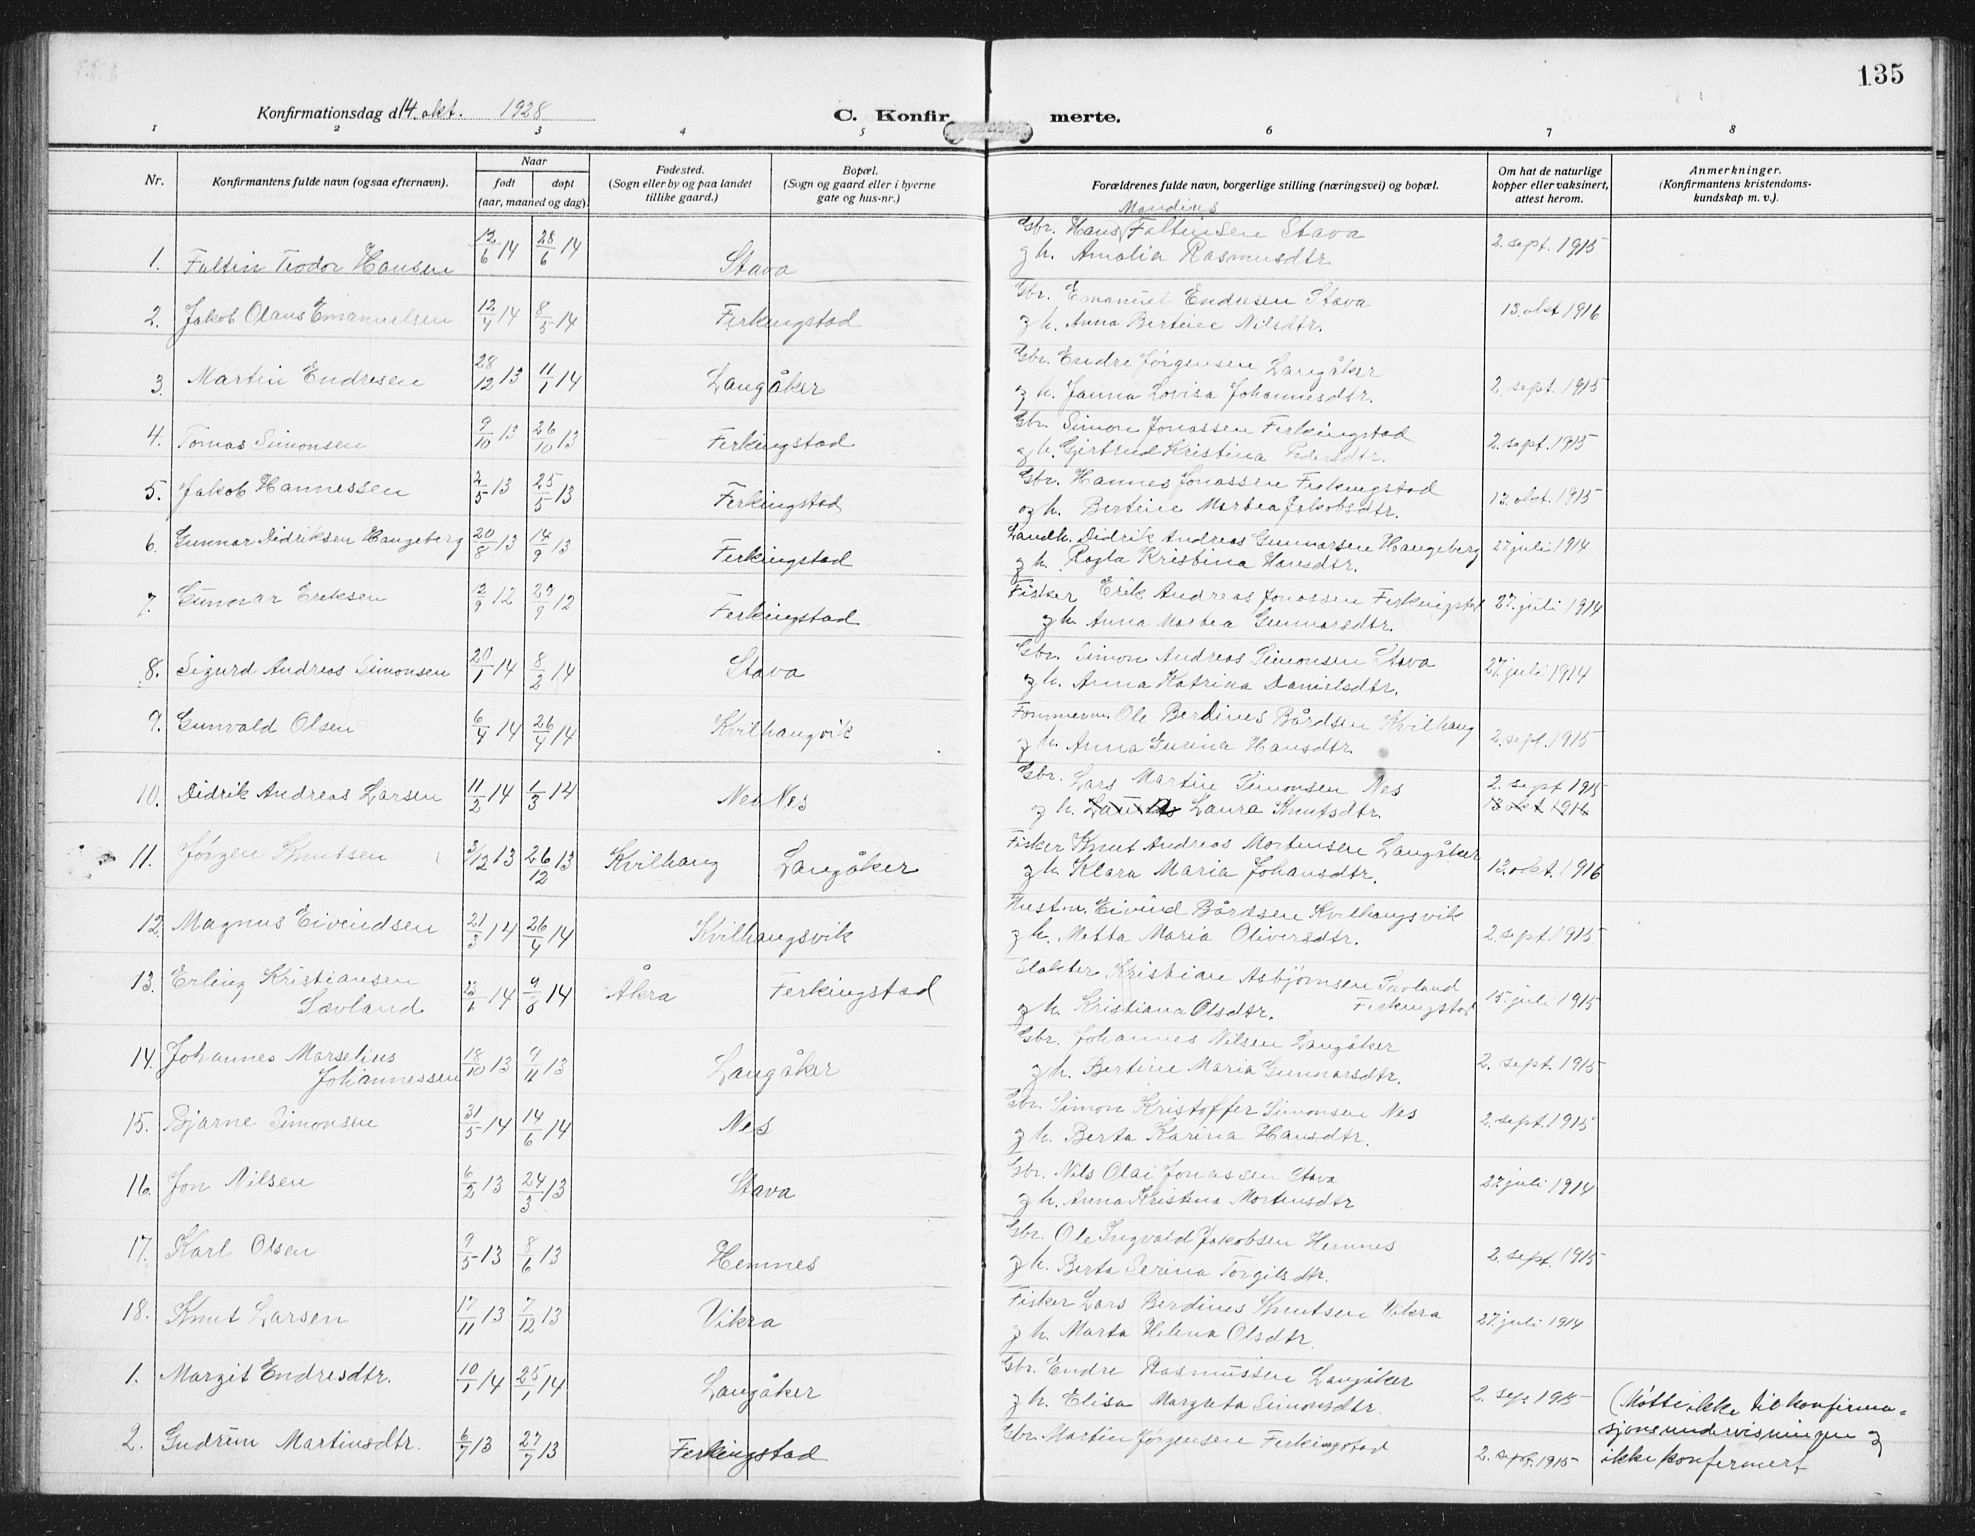 135
Konfirmationsdag d. 14. okt. 1928
C. Konfirmerte.
1 2 3 4 5 6 7 8
Nr. Konfirmantens fulde navn (ogsaa efternavn). Naar født døpt (aar, maaned og dag). Fødested. (Sogn eller by og paa landet tillike gaard.) Bopæl. (Sogn og gaard eller i byerne gate og hus-nr.) Forældrenes fulde navn, borgerlige stilling (næringsvei) og bopæl. Om hat de naturlige kopper eller vaksinert, attest herom. Anmerkninger. (Konfirmantens kristendomskundskap m. v.).
1. Faltin Teodor Hansen 12/6 14 28/6 14 Stava Gbr. Hans Mandius Faltinsen Stava 2. sept. 1915
og h. Amalia Rasmusdtr.
2. Jakob Olaus Emanuelsen 12/4 14 8/5 14 Ferkingstad Gbr. Emanuel Endresen Stava 13. okt 1916
og h. Anna Bertine Nilsdtr.
3. Martin Endresen 28/12 13 11/1 14 Langåker Gbr. Endre Jørgensen Langåker 2. sept. 1915
og h. Janna Lovisa Johannesdtr.
4. Tomas Simonsen 9/10 13 26/10 13 Ferkingstad Gbr. Simon Jonassen Ferkingstad 2. sept. 1915
og h. Gjertrud Kristina Pedersdtr.
5. Jakob Hannessen 2/5 13 25/5 13 Ferkingstad Gbr. Hannes Jonassen Ferkingstad 13. okt. 1915
og h. Bertine Martea Jakobsdtr.
6. Gunnar Didriksen Haugeberg 20/8 13 14/9 13 Ferkingstad Landh. Didrik Andreas Gunnarsen Haugeberg 27 juli 1914
og h. Ragla Kristina Hansdtr.
7. Gunnar Eriksen 12/9 12 29/9 12 Ferkingstad Fisker Erik Andreas Jonassen Ferkingstad 27. juli 1914
og h. Anna Martea Gunnarsdtr.
8. Sigurd Andreas Simonsen 20/1 14 8/2 14 Stava Gbr. Simon Andreas Simonsen Stava 27. juli 1914
og h. Anna Katrina Danielsdtr.
9. Gunvald Olsen 6/4 14 26/4 14 Kvilhaugvik Tømmerm. Ole Berdines Bårdsen Kvilhaug 2. sept. 1915
og h. Anna Gurina Hansdtr.
10. Didrik Andreas Larsen 11/2 14 1/3 14 Nes Nes Gbr. Lars Martin Simonsen Nes 2. sept 1915
og h. Laura Knutsdtr. 13 okt 1916
11. Jørgen Knutsen 3/12 13 26/12 13 Kvilhaug Langåker Fisker Knut Andreas Mortensen Langåker 13. okt. 1916
og h. Klara Maria Johansdtr.
12. Magnus Eivindsen 21/3 14 26/4 14 Kvilhaugsvik Hustm. Eivind Bårdsen Kvilhaugsvik 2. sept. 1915
og h. Metta Maria Oliversdtr.
13. Erling Kristiansen Sævland 14 14 Åkra Ferkingstad Slakter Kristian Asbjørnsen Sævland 15. juli 1915
og h. Kristiana Olsdtr. Ferkingstad
14. Johannes Marselius Johannessen 18/10 13 9/11 13 Langåker Gbr. Johannes Nilsen Langåker 2. sept. 1915
og h. Bertine Maria Gunnarsdtr.
15. Bjarne Simonsen 31/5 14 14/6 14 Nes Gbr. Simon Kristoffer Simonsen Nes 2. sept. 1915
og h. Berta Karina Hansdtr.
16. Jon Nilsen 6/2 13 24/3 13 Stava Gbr. Nils Olai Jonassen Stava 27. juli 1914
og h. Anna Kristina Mortensdtr
17. Karl Olsen 9/5 13 8/6 13 Hemnes Gbr. Ole Ingvald Jakobsen Hemnes 2. sept. 1915
og h. Berta Serina Torgilsdtr.
18. Knut Larsen 17/11 13 7/12 13 Vikra Fisker Lars Berdines Knutsen Vikra 27. juli 1914
og h. Marta Helena Olsdtr.
1. Margit Endresdtr. 10/1 14 25/1 14 Langåker Gbr. Endre Rasmussen Langåker 2. sep. 1915
og h. Elisa Margreta Simonsdtr.
2. Gudrun Martinsdtr. 6/7 13 27/7 13 Ferkingstad Gbr. Martin Jørgensen Ferkingstad 2. sept. 1915 (Møtte ikke til konfirma-
sjonsundervisningen og
ikke konfermert